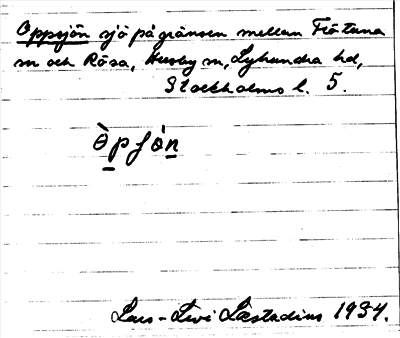 Oppsjön sjö på gränsen mellan Frötuna
sn och Rösa, Husby sn, Lyhundra hd,
Stockholms l. 5.
òpʃón
Lars-Levi Læstadius 1934.